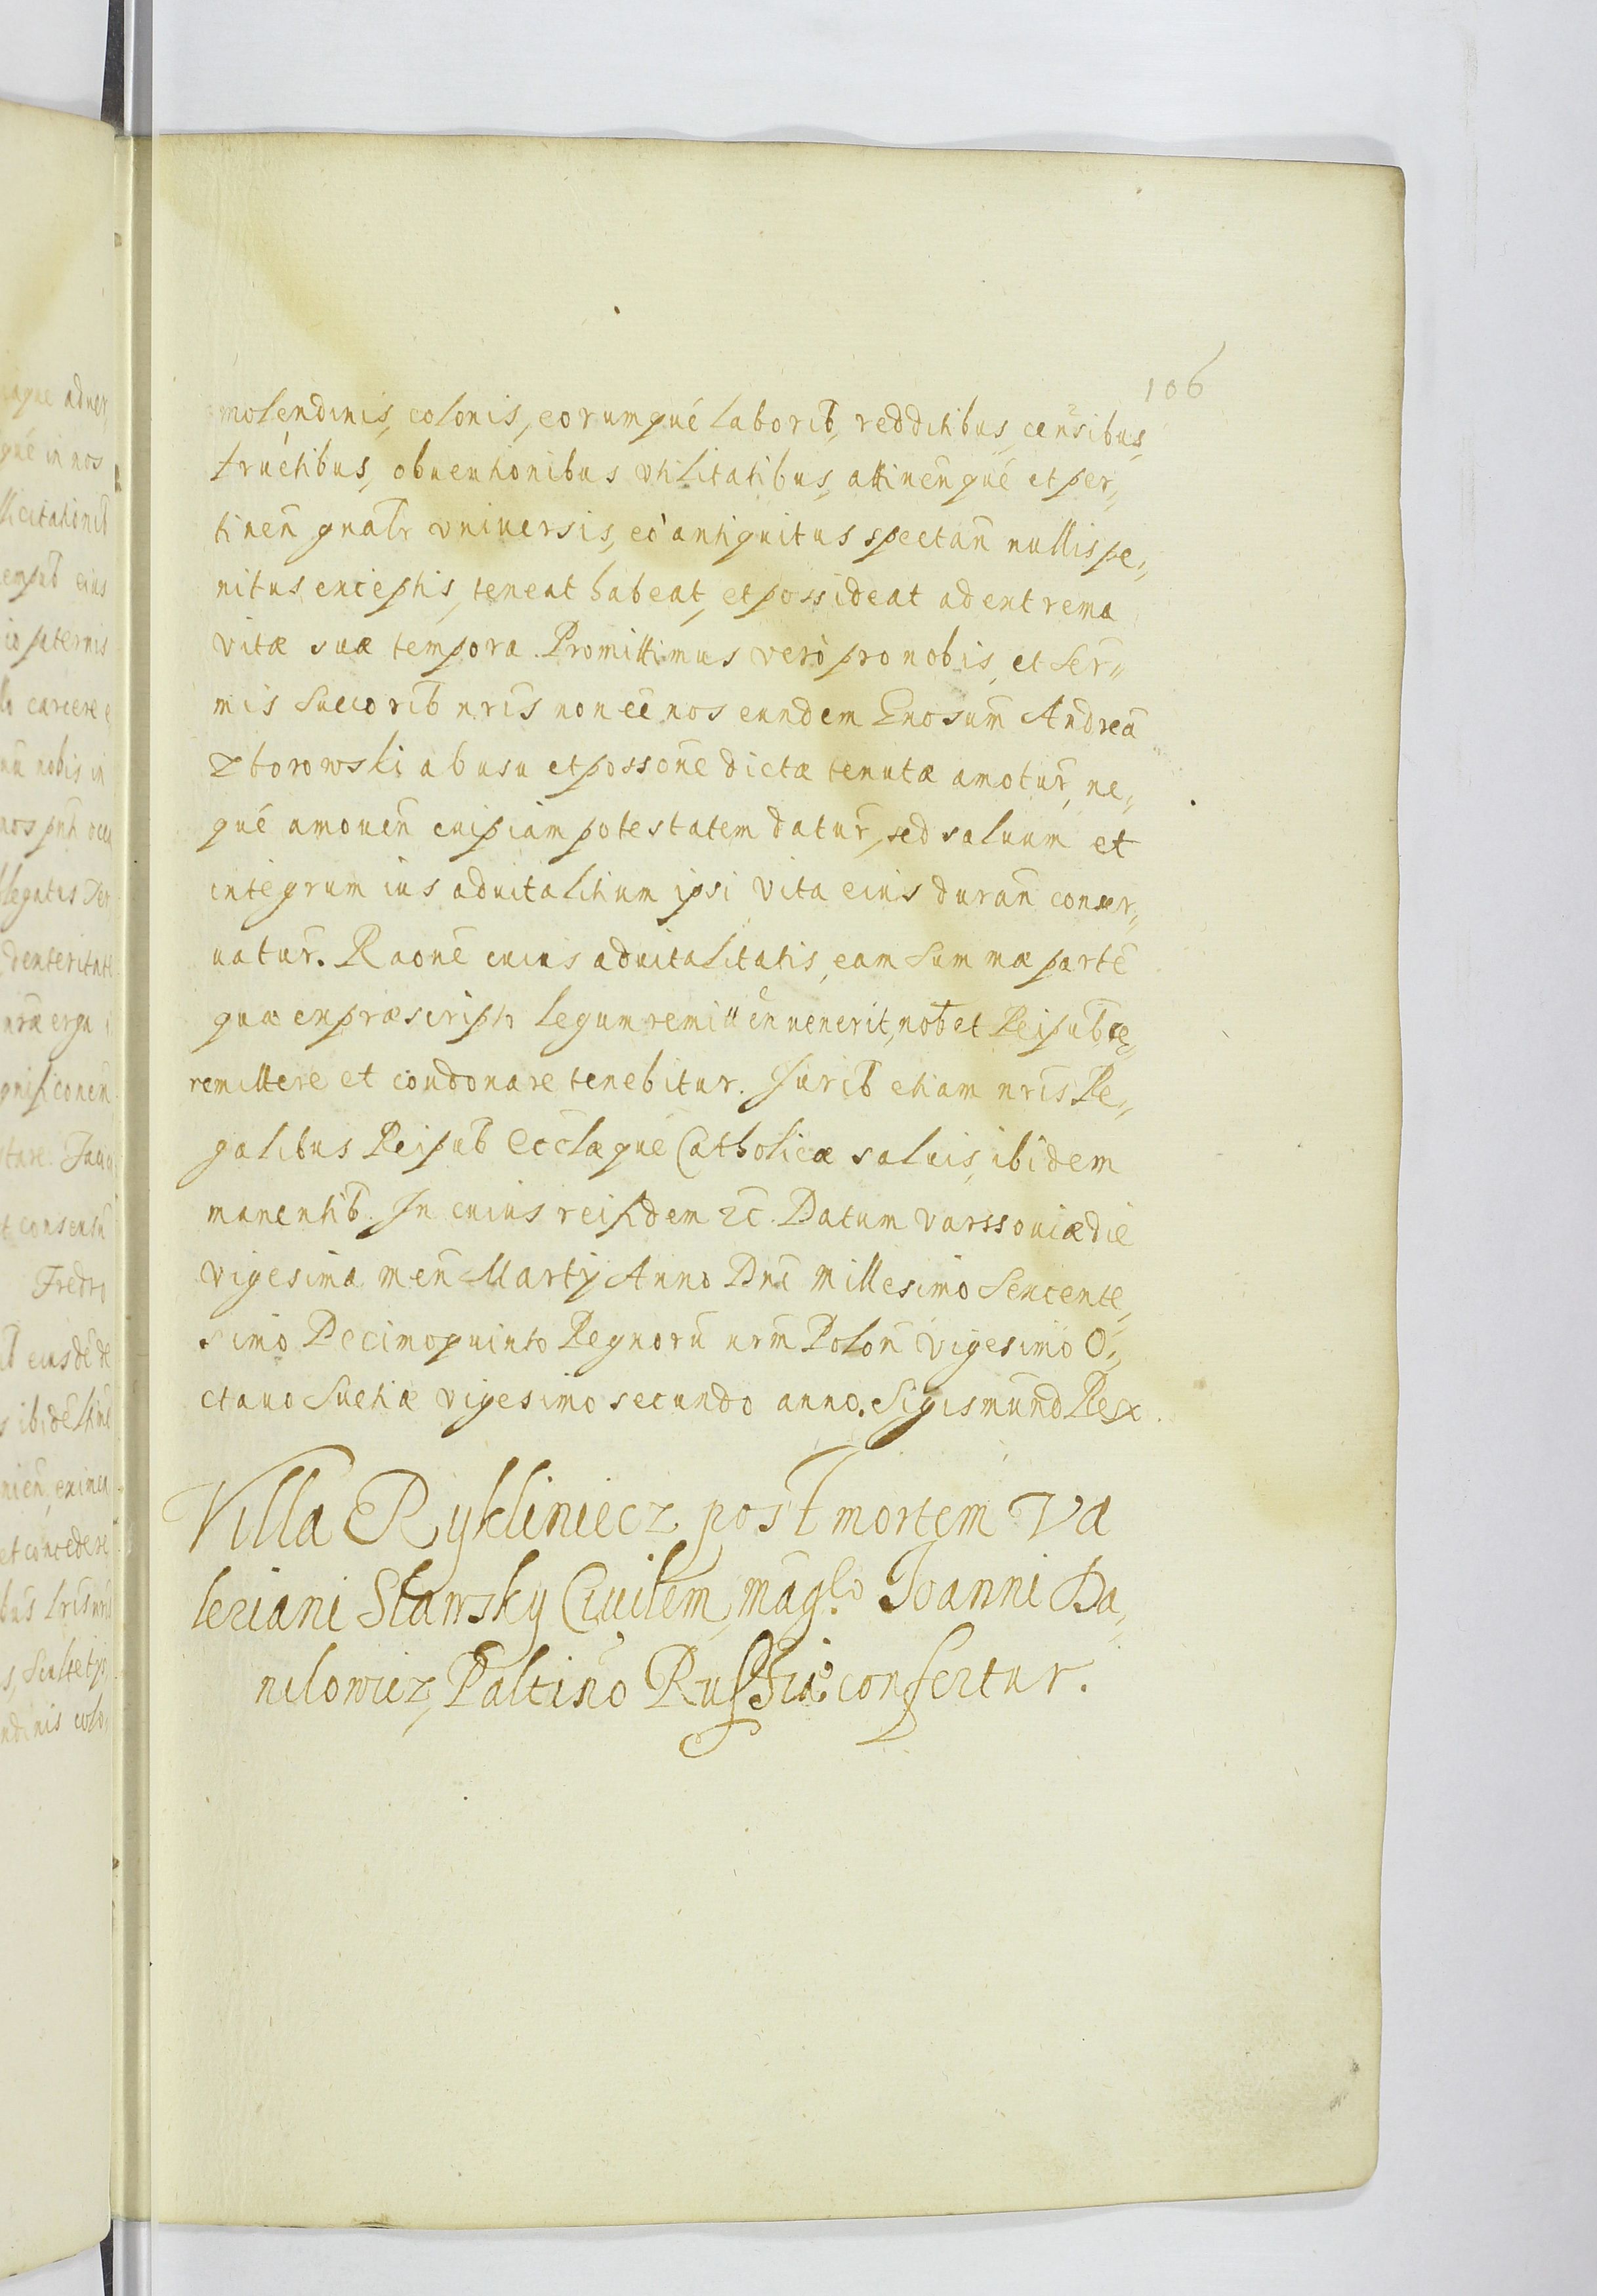 106
molendinis, colonis, eorumqué laborib̃, redditibus, censibus,
fructibus, obuentionibus vtilitatibus, attineñqué et per„
tineñ gnãlr vniuersis, eò antiquitus spectañ nullis pe„
nitus exceptis, teneat habeat, et possideat ad extrema
vitæ suæ tempora. Promittimus verò pro nobis, et Ser„
mis Succorib̃ nr̃is non eẽ nos eundem Gnosum̃ Andreã
Zborowski ab usu et possonẽ dictæ tenutæ amotur̃, ne„
qué amoueñ cuipiam potestatem datur̃, sed saluum et
integrum ius aduitalitium ipsi vita eius durañ conser„
uatur̃. Raonẽ cuius aduitalitatis, eam Summæ partẽ
quæ ex præscripto legum remitteñ uenerit, nob̃ et Reipub̃cæ„
remittere et condonare tenebitur. Jurib̃ etiam nr̃is Re„
galibus Reipub̃ Ecclæqué Catholicæ saluis, ibidem
manentib̃. In cuius rei fidem ꝛc̃. Datum Varssouiæ die
vigesima meñ Martÿ Anno Dnĩ Millesimo Sexcente„
simo Decimoquinto Regnorũ nrm̃ Poloñ vigesimo O„
ctauo Suetiæ vigesimo secundo anno. Sigismund Rex.
Villa Rykliniecz post mortem Va
leriani Stawsky Ciuilem, mag.co Joanni Da„
nilowicz, Paltiño Russiæ confertur.
itaque aduer„
qué in nos
llicitationib̃
eius
paternis
carcere
nobis in
nos
legatus
dexteritate
nr̃æ erga
consensũ
Fredro
eiusdẽ
ibidẽ
et concedere
Scultetÿs,
ndinis colo„